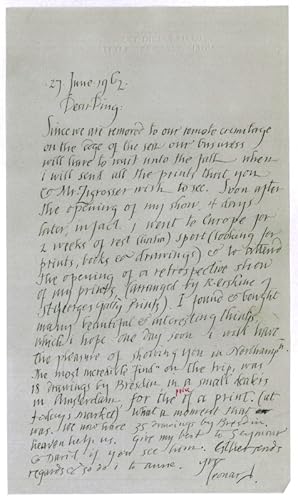 27 June 1962.
Dear Ping:
Since we are removed to our remote hermitage
on the edge of the sea our business
will have to wait until the fall when
i will send all the prints that you
& Mr Ingrosser wish to see. Soon after
the opening of my show, 4 days
later, in fact I went to Europe for
2 weeks of rest sport (looking for
prints, books & drawings) & to attend
the opening of a retrospective show
of my prints (arranged by R. erskine of
St Georges Gally Prints). I found & bought
many beautiful & interesting things
which i hope one day soon i will have
the pleasure of showing you in Northampn.
The most incredible "find" on the trip, was
18 drawings by Bresdin in a small dealers
in Amsterdam for the price of a print. (at
todays market) What a moment that
was. We now have 35 drawings by Bresdin,
heaven help us. Give my best to Seymour
& David if you see them. Esther sends
regards & so do i to anne.
yrs
Leonard.